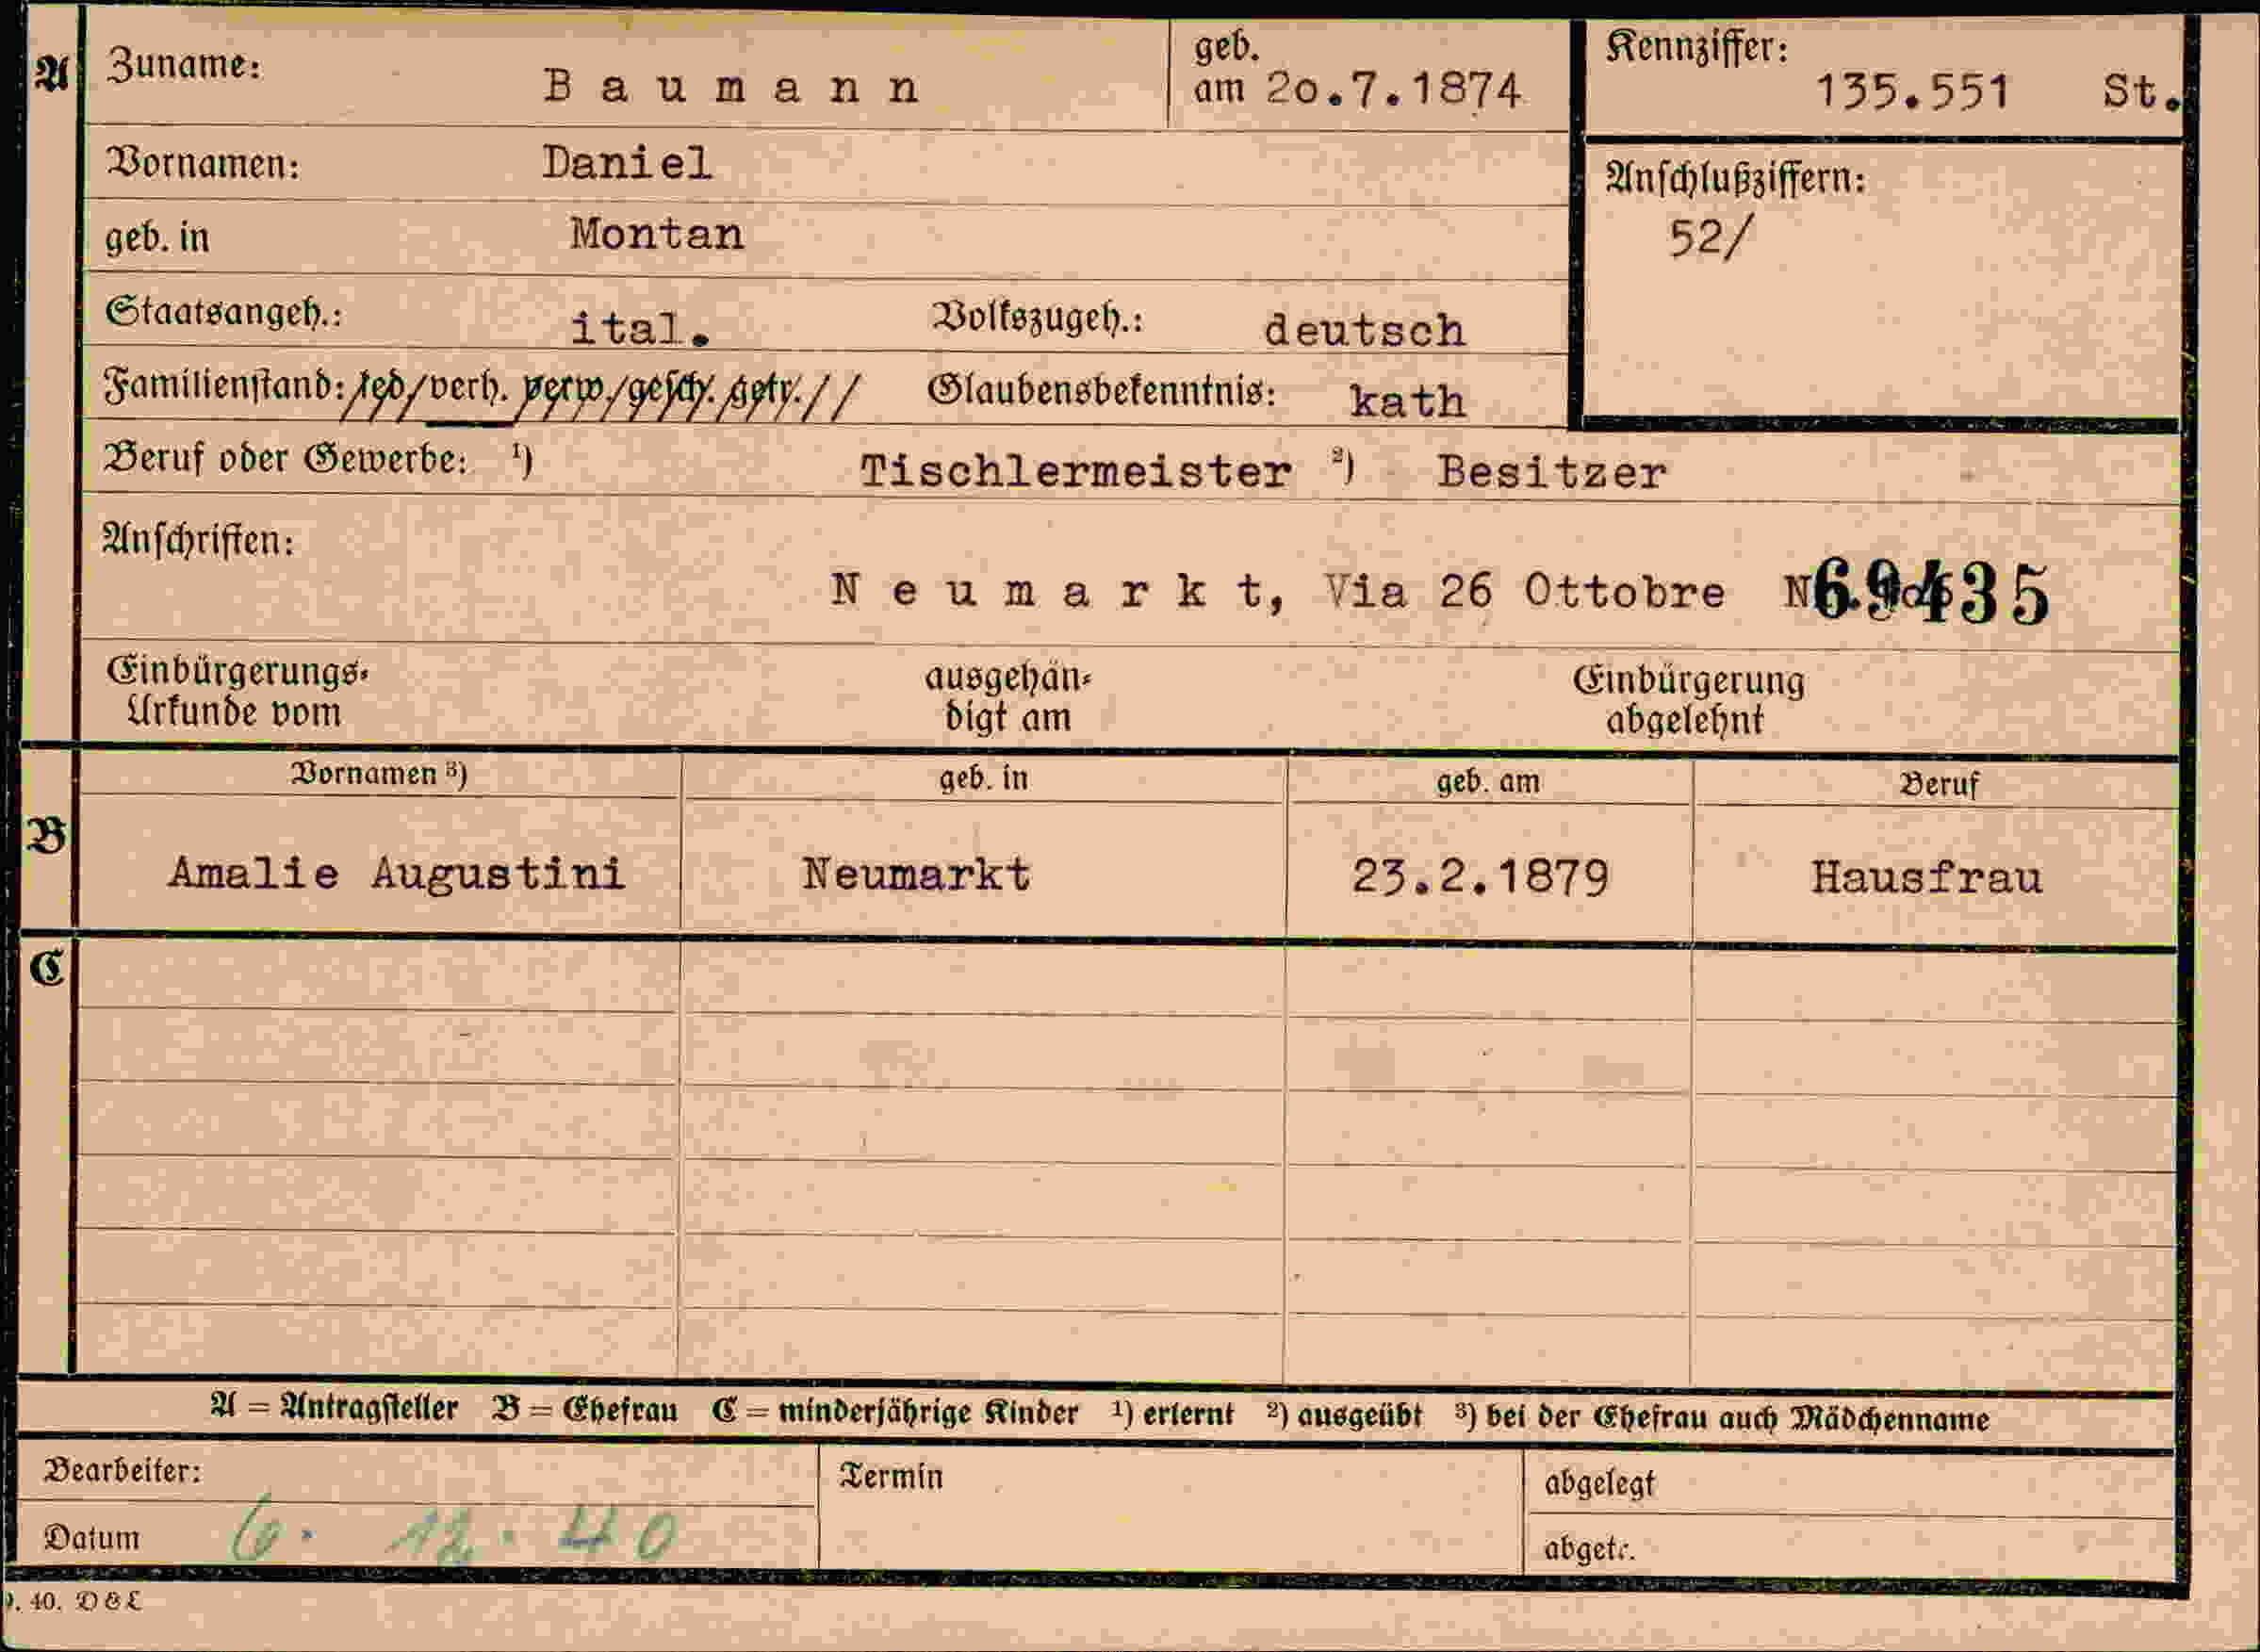 A Zuname: Baumann geb. am 20.7.1874 Kennziffer: 135.551 St.
Vornamen: Daniel
Anschlußziffern: 52/
geb. in Montan
Staatsangeh.: ital. Volkszugeh.: deutsch
Familienstand: led/verh. verw./gesch. getr.// Glaubensbekenntnis: kath
Beruf oder Gewerbe: ¹) Tischlermeister ²) Besitzer
Anschriften:
Neumarkt, Via 26 Ottobre
69435
Einbürgerungs- Urkunde vom ausgehän- digt am Einbürgerung abgelehnt
Vornamen ³) geb. in geb. am Beruf
B Amalie Augustini Neumarkt 23.2.1879 Hausfrau
C
A = Antragsteller B = Ehefrau C = minderjährige Kinder ¹) erlernt ²) ausgeübt ³) bei der Ehefrau auch Mädchenname
Bearbeiter: Termin abgelegt
Datum 6. 12. 40 abgetr.
40. D&L